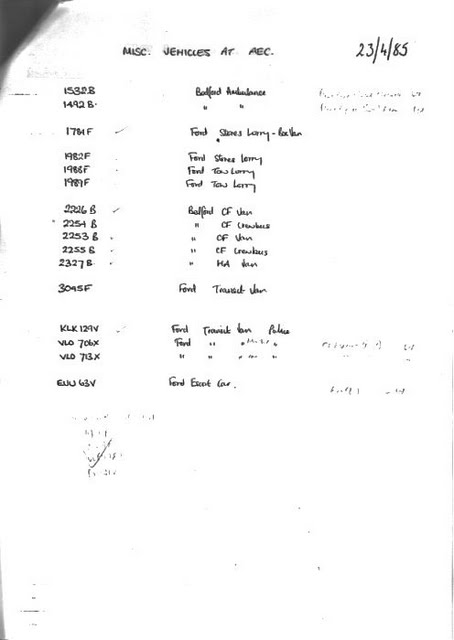 MISC. VEHICLES AT AEC. 23/4/85
1532B Bedford Ambulance
1492B " "
1781F ✓ Ford Stores Lorry - Box Van
1982F Ford Stores Lorry
1988F Ford Tow Lorry
1989F Ford Tow Lorry
2226B ✓ Bedford CF Van
2254B " CF Crewbus
2253B " CF Van
2255B " CF Crewbus
2327B " HA Van
3045F Ford Transit Van
KLK 129V Ford Transit Van Police
VLO 706X Ford " " "
VLO 713X " " " "
EUU 63V Ford Escort Car.